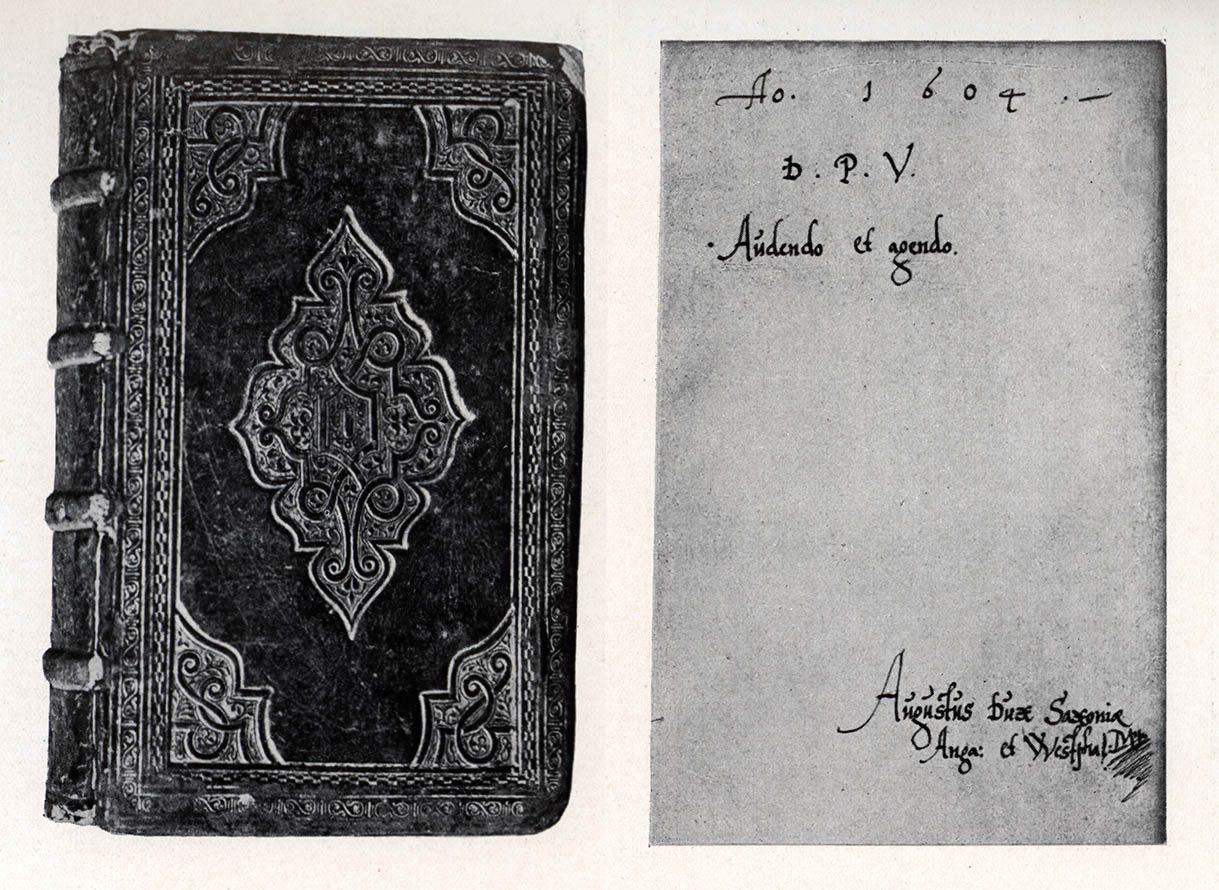 Ao. 1604.—
D. P. V.
Audendo et agendo.
Augustus Dux Saxoniæ
Anga: et Westphal.